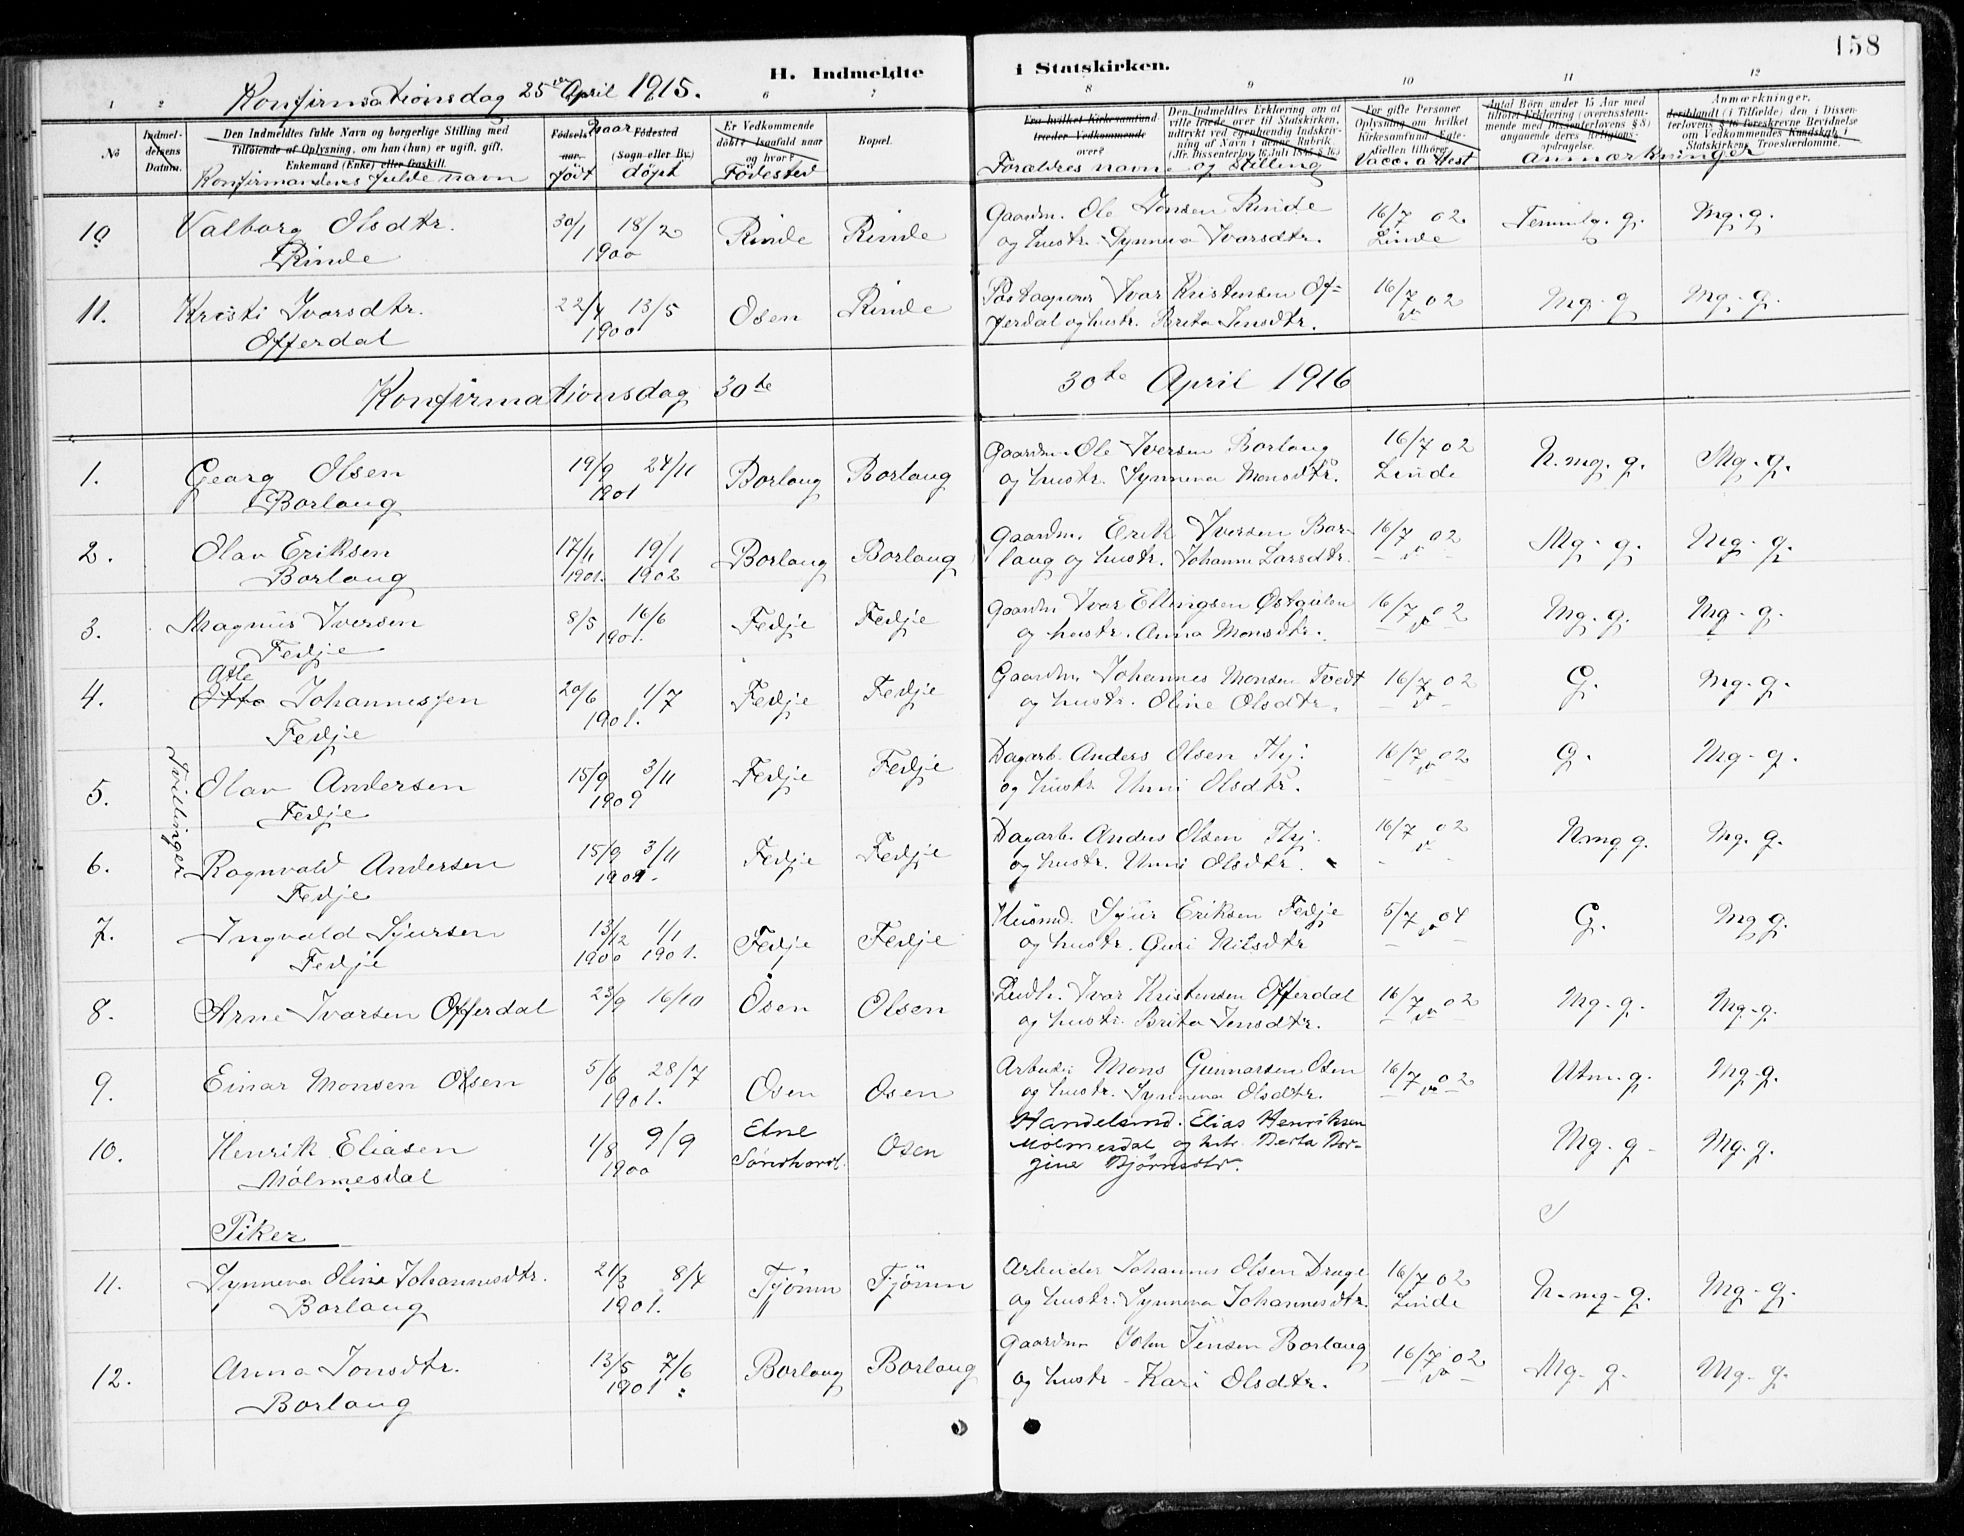 158
H. Indmeldte i Statskirken.
Konfirmationsdag 25de April 1915.
1 2 6 7 8 9 10 11 12
No
Indmeldelsens Datum.
Den Indmeldtes fulde Navn og borgerlige Stilling med
Tilföiende af Oplysning, om han (hun) er ugift, gift,
Enkemand (Enke) eller fraskilt.
Konfirmandens fulde navn
Födselsaar.
født
naar
Födested
(Sogn eller By.)
døpt
Er Vedkommende
döbt? Isaafald naar
og hvor?
Fødested
Bopel.
Fra hvilket Kirkesamfund
træder Vedkommende
over?
Forældres navn og stilling
Den Indmeldtes Erklering om at
ville træde over til Statskirken,
udtrykt ved egenhendig Indskrivning af Navn i denne Rubrik
(Jfr. Dissenterlov 16 Juli 1845 § 16.)
For gifte Personer
Oplysning om hvilket
Kirkesamfund Egtefællen tilhörer.
Vacc. attest
Antal Börn under 15 Aar med
tilhold Erklering (overensstemmende med Dissenterlovens § 8)
angaaende deres Religionsopdragelse.
Anmærkninger
Anmærkninger,
deriblandt (i Tilfælde) den i Dissenterlovens § 16 foreskrevne Bevidnelse
om Vedkommendes Kundskab i
Statskirkens Troeslærdomme.
10. Valborg Olsdtr. 30/1 18/2 Rinde Rinde Gaardm. Ole Jonsen Rinde 16/7 02. Temmelig. g. Mg. g.
Rinde 1900 og hustr. Synneva Ivarsdtr. Linde
11. Kristi Ivarsdtr. 22/4 13/5 Osen Rinde Postaapner Ivar Kristensen Of- 16/7 02 Mg. g Mg. g.
Offerdal 1900 ferdal og hustr. Brita Jensdtr.
Konfirmationsdag 30te 30te April 1916
1. Georg Olsen 19/9 24/11 Borlaug Borlaug Gaardm. Ole Iversen Borlaug 16/7 02 N. mg. g. Mg. g.
Borlaug 1901 og hustr. Synneva Monsdtr. Linde
2. Olav Eriksen 17/11 19/1 Borlaug Borlaug Gaardm. Erik Iversen Bor- 16/7 02 Mg. g. Mg. g.
Borlaug 1901. 1902 laug og hustr. Johanne Larsdtr.
3. Magnus Iversen 8/5 16/6 Fedje Fedje Gaardm Ivar Ellingsen Østgulen 16/7 02 Mg. g. Mg. g.
Fedje 1901. og hustr. Anna Monsdtr.
Atle
4. Otto Johannesen 20/6 1/7 Fedje Fedje Gaardm. Johannes Monsen Tvedt 16/7 02 G. Mg. g.
Fedje 1901. og hustr. Oline Olsdtr.
Tvillinger
5. Olav Andersen 15/9 3/11 Fedje Fedje Dagarb. Anders Olsen Thy: 16/7 02 G. Mg. g.
Fedje og hustr. Unni Olsdtr.
6. Ragnvald Andersen 15/9 3/11 Fedje Fedje Dagarb. Anders Olsen Thy. 16/7 02 N.mg g. Mg. g.
Fedje og hustr. Unni Olsdtr.
7. Ingvald Sjursen 13/12 1/1 Fedje Fedje Husmd. Sjur Eriksen Fedje 5/7 04 G. Mg g.
Fedje 1900 1901. og hustr. Guri Nilsdtr
8. Arne Ivarsen Offerdal 23/9 16/10 Osen Olsen Ivar Kristensen Offerdal 16/7 02 Mg. g. Mg. g.
og hustr. Brita Jensdtr.
9. Einar Monsen Olsen 5/6 28/7 Osen Osen Arbeider Mons Gunnarsen Osen 16/7 02 Utm. g. Mg. g.
1901. og hustr. Synneva Olsdtr.
10. Henrik Eliasen 1/8 9/9 Etne Osen Handelsmd. Elias Henriksen Mg. g Mg. g.
Mølmesdal 1900 Søndhordl. Mølmesdal og hstr. Berta Bor-
gine Bjørnsdtr.
Piker
11. Synneva Olina Johannesdtr. 21/3 8/4 Tjønn Tjønn Arbeider Johannes Olsen Drage 16/7 02 N. mg. g. Mg. g.
Borlaug 1901. og hustr. Synneva Johannesdtr. Linde
12. Anna Jonsdtr. 13/5 7/6 Borlaug Borlaug Gaardm John Jensen Borlaug 16/7 02 Mg. g. Mg. g.
Borlaug 1901 og hustr. Kari Olsdtr.